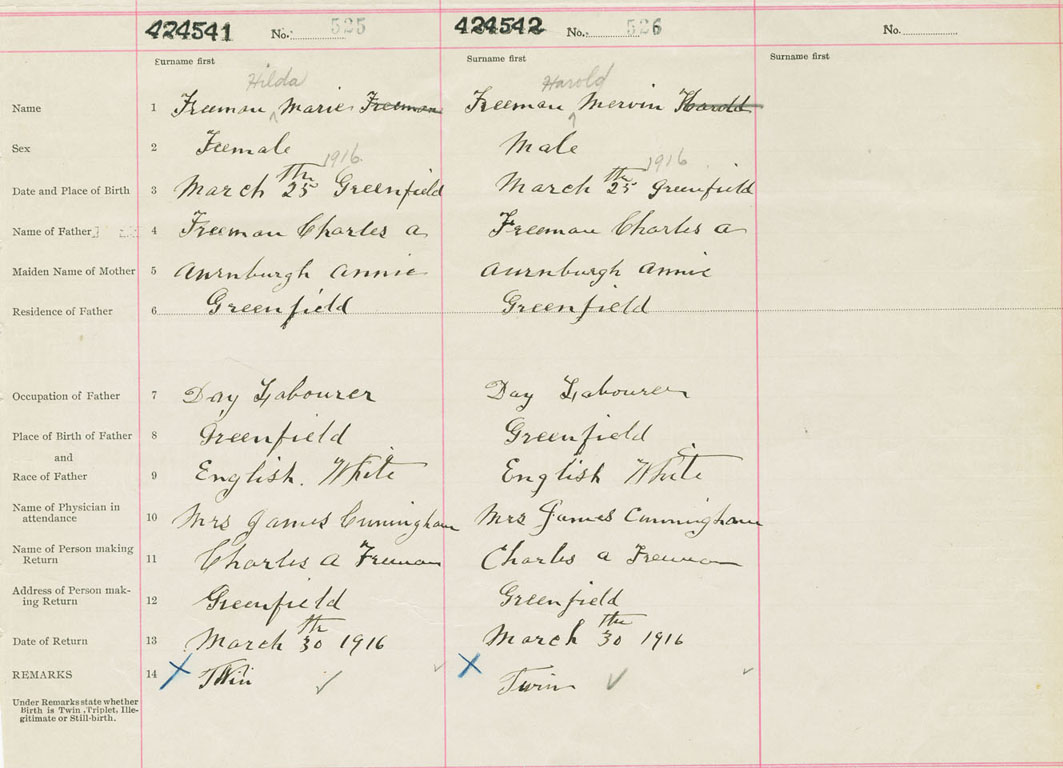 424541 No. 525 424542 No. 526 No.
Surname first Surname first Surname first
Hilda Harold
Name 1 Freeman ^ Marie Freeman Freeman ^ Mervin Harold
Sex 2 Feemale Male
1916 1916
Date and Place of Birth 3 March 25th Greenfield March 25th Greenfield
Name of Father 4 Freeman Charles A Freeman Charles A
Maiden Name of Mother 5 Aurnburgh Annie Aurnburgh Annie
Residence of Father 6 Greenfield Greenfield
Occupation of Father 7 Day Labourer Day Labourer
Place of Birth of Father 8 Greenfield Greenfield
and
Race of Father 9 English. White English White
Name of Physician in
attendance 10 Mrs James Cunningham Mrs James Cunningham
Name of Person making
Return 11 Charles A Freeman Charles A Freeman
Address of Person mak-
ing Return 12 Greenfield Greenfield
Date of Return 13 March 30th 1916 March 30th 1916
REMARKS 14 Twin Twin
Under Remarks state whether
Birth is Twin, Triplet, Ille-
gitimate or Still-birth.